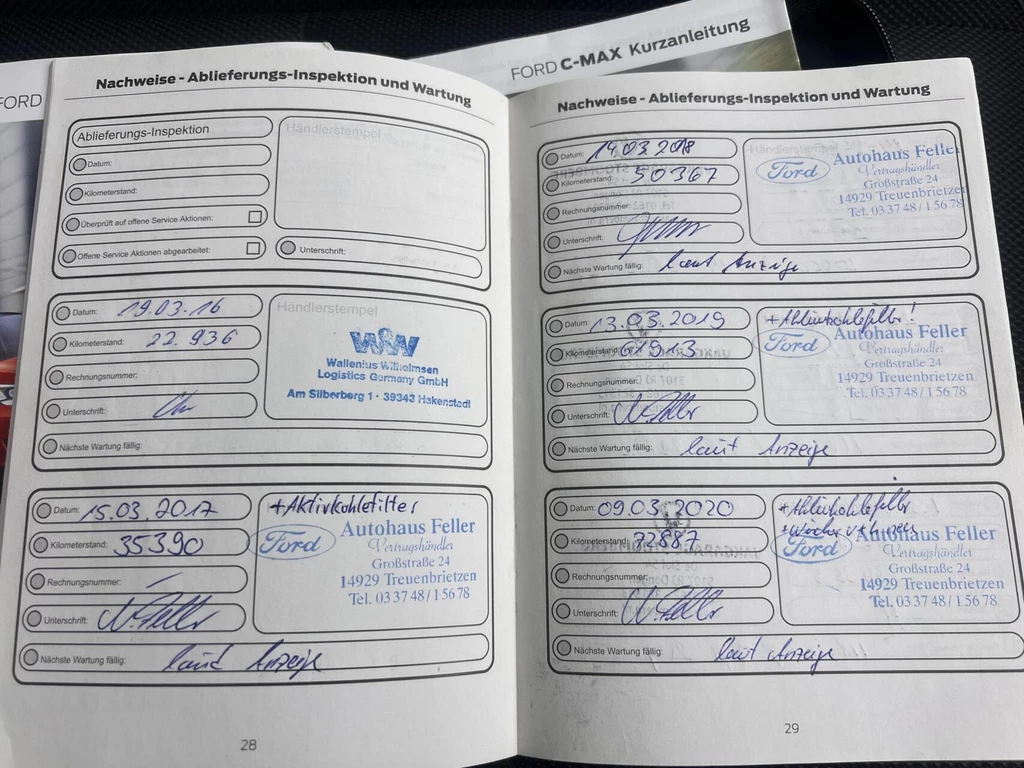 FORD C-MAX Kurzanleitung
FORD
Nachweise - Ablieferungs-Inspektion und Wartung
Ablieferungs-Inspektion
Händlerstempel
Datum:
Kilometerstand:
Überprüft auf offene Service Aktionen:
Offene Service Aktionen abgearbeitet:
Unterschrift:
Datum: 19.03.16
Händlerstempel
Kilometerstand: 22.936
Rechnungsnummer:
Unterschrift:
WW
Wallenius Wilhelmsen
Logistics Germany GmbH
Am Silberberg 1 · 39343 Hakenstedt
Nächste Wartung fällig:
Datum: 15.03.2017
+Aktivkohlefilter
Kilometerstand: 35390
Rechnungsnummer: -
Unterschrift:
Ford
Autohaus Feller
Vertragshändler
Großstraße 24
14929 Treuenbrietzen
Tel. 03 37 48 / 1 56 78
Nächste Wartung fällig: laut Anzeige
28
Nachweise - Ablieferungs-Inspektion und Wartung
Datum: 14.03.2018
Händlerstempel
Kilometerstand: 50367
Rechnungsnummer:
Unterschrift:
Ford
Autohaus Feller
Vertragshändler
Großstraße 24
14929 Treuenbrietzen
Tel. 03 37 48 / 1 56 78
Nächste Wartung fällig: laut Anzeige
Datum: 13.03.2019
+Aktivkohlefilter!
Kilometerstand: 61913
Rechnungsnummer:
Unterschrift:
Ford
Autohaus Feller
Vertragshändler
Großstraße 24
14929 Treuenbrietzen
Tel. 03 37 48 / 1 56 78
Nächste Wartung fällig: laut Anzeige
Datum: 09.03.2020
+Aktivkohlefilter
Kilometerstand: 72887
Rechnungsnummer:
Unterschrift:
Ford
Autohaus Feller
Vertragshändler
Großstraße 24
14929 Treuenbrietzen
Tel. 03 37 48 / 1 56 78
Nächste Wartung fällig: laut Anzeige
29